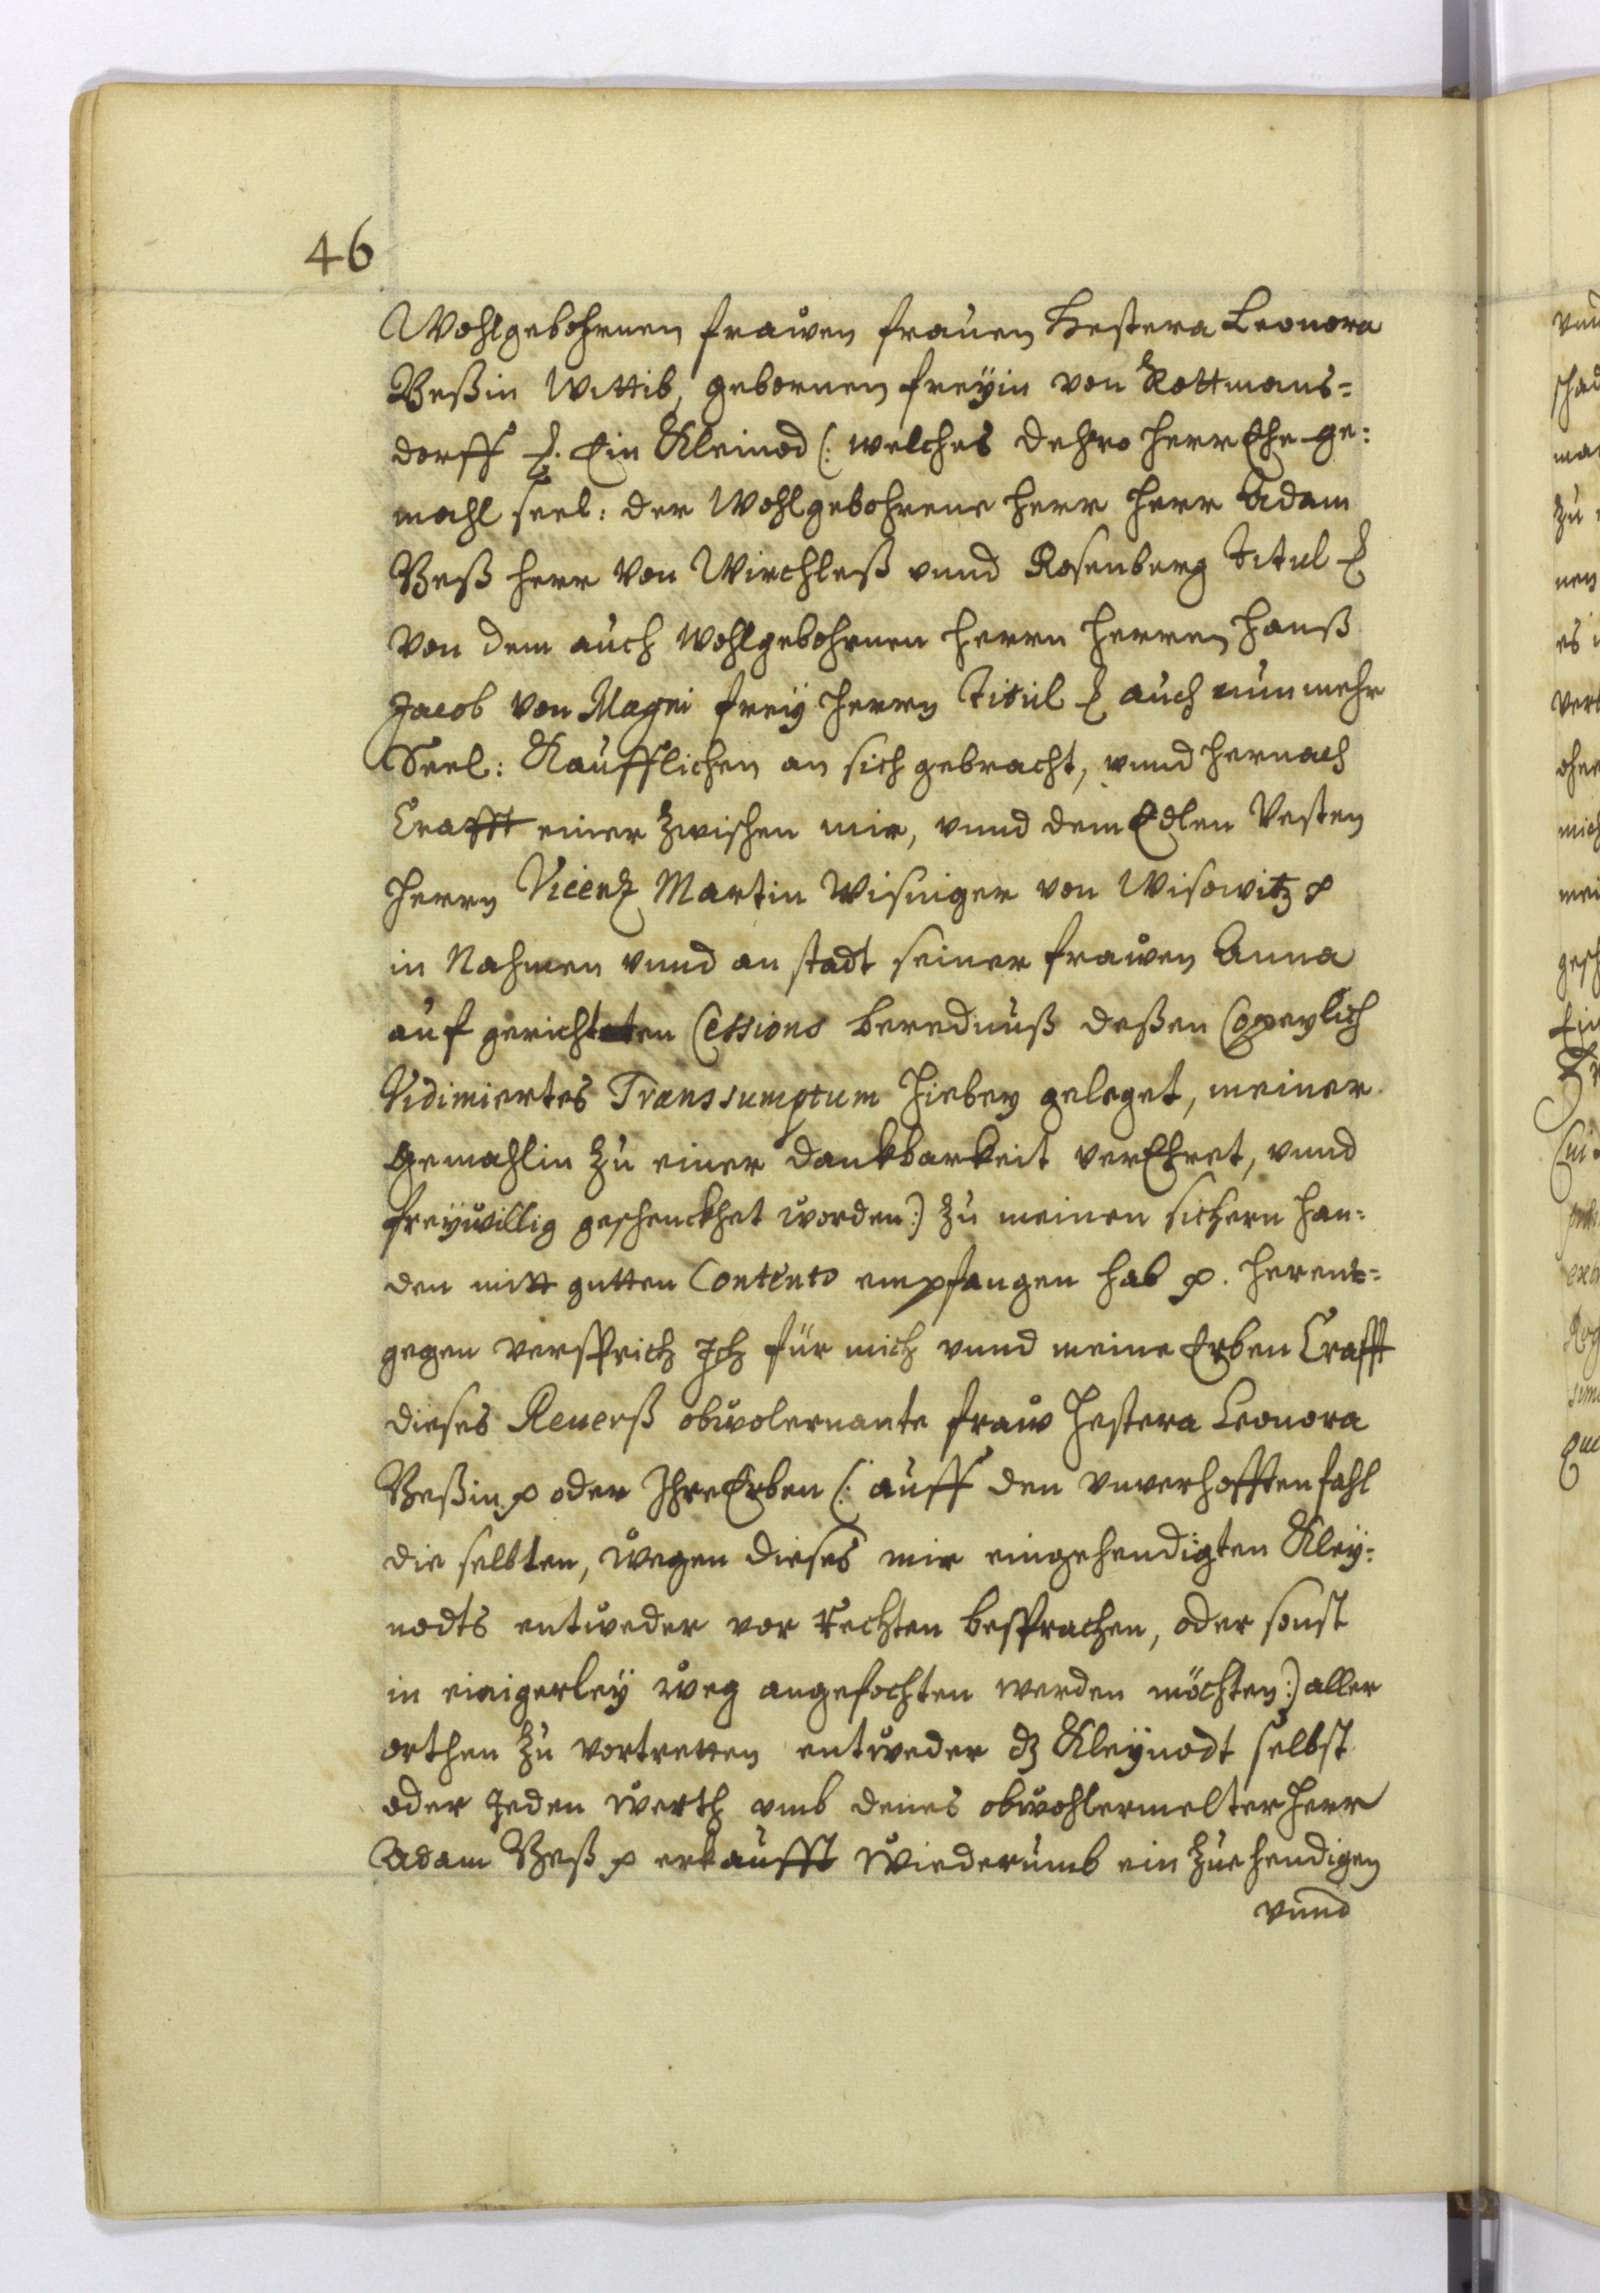 46
Wohlgebohrnen frawen frauen Hestera Leonora
Beßin Wittib, gebornen freÿin von Rottmans=
dorff ꝛ. Ein Kleinod (: welches dehro herr Ehe ge:
mahl seel: der Wohlgebohrene herr herr Adam
Beß herr von Wirchleß vnnd Rosenberg Titul ꝛ
von dem auch Wohlgebohrnen herrn herren Hanß
Jacob von Magni freÿ herrn Titul ꝛ auch nunmehr
Seel: Kaufflichen an sich gebracht, vnnd hernach
Crafft einer zwischen mir, vnnd dem Edlen Vesten
herrn Vicenz Martin Wisniger von Wisowitz ꝛ
in Nahmen vnnd an stadt seiner frawen Anna
auf gerichteten Cessions berednuß deßen Copeylich
Vidimiertes Transsumptum hiebey geleget, meiner
Gemahlin zu einer dankbarkeit verEhret, vnnd
freÿwillig geschenckhet worden:) zu meinen sichern han=
den mitt gutten Contento empfangen hab ꝛ. herent=
gegen versprich Ich für mich vnnd meine Erben Crafft
dieses Reuerß obwolernante fraw Hestera Leonora
Beßin ꝛ oder Ihre Erben (: auff den vnverhofften fahl
die selbten, wegen dieses mir eingehendigten Kleÿ=
nodts entweder vor Rechten besprachen, oder sonst
in einigerleÿ weg angefochten werden möchten:) aller
orthen zu vortretten entweder dz Kleÿnodt selbst
oder Jeden werth vmb denes obwohlermelter herr
Adam Beß ꝛ erkaufft wiederumb ein zue hendigen
vnnd